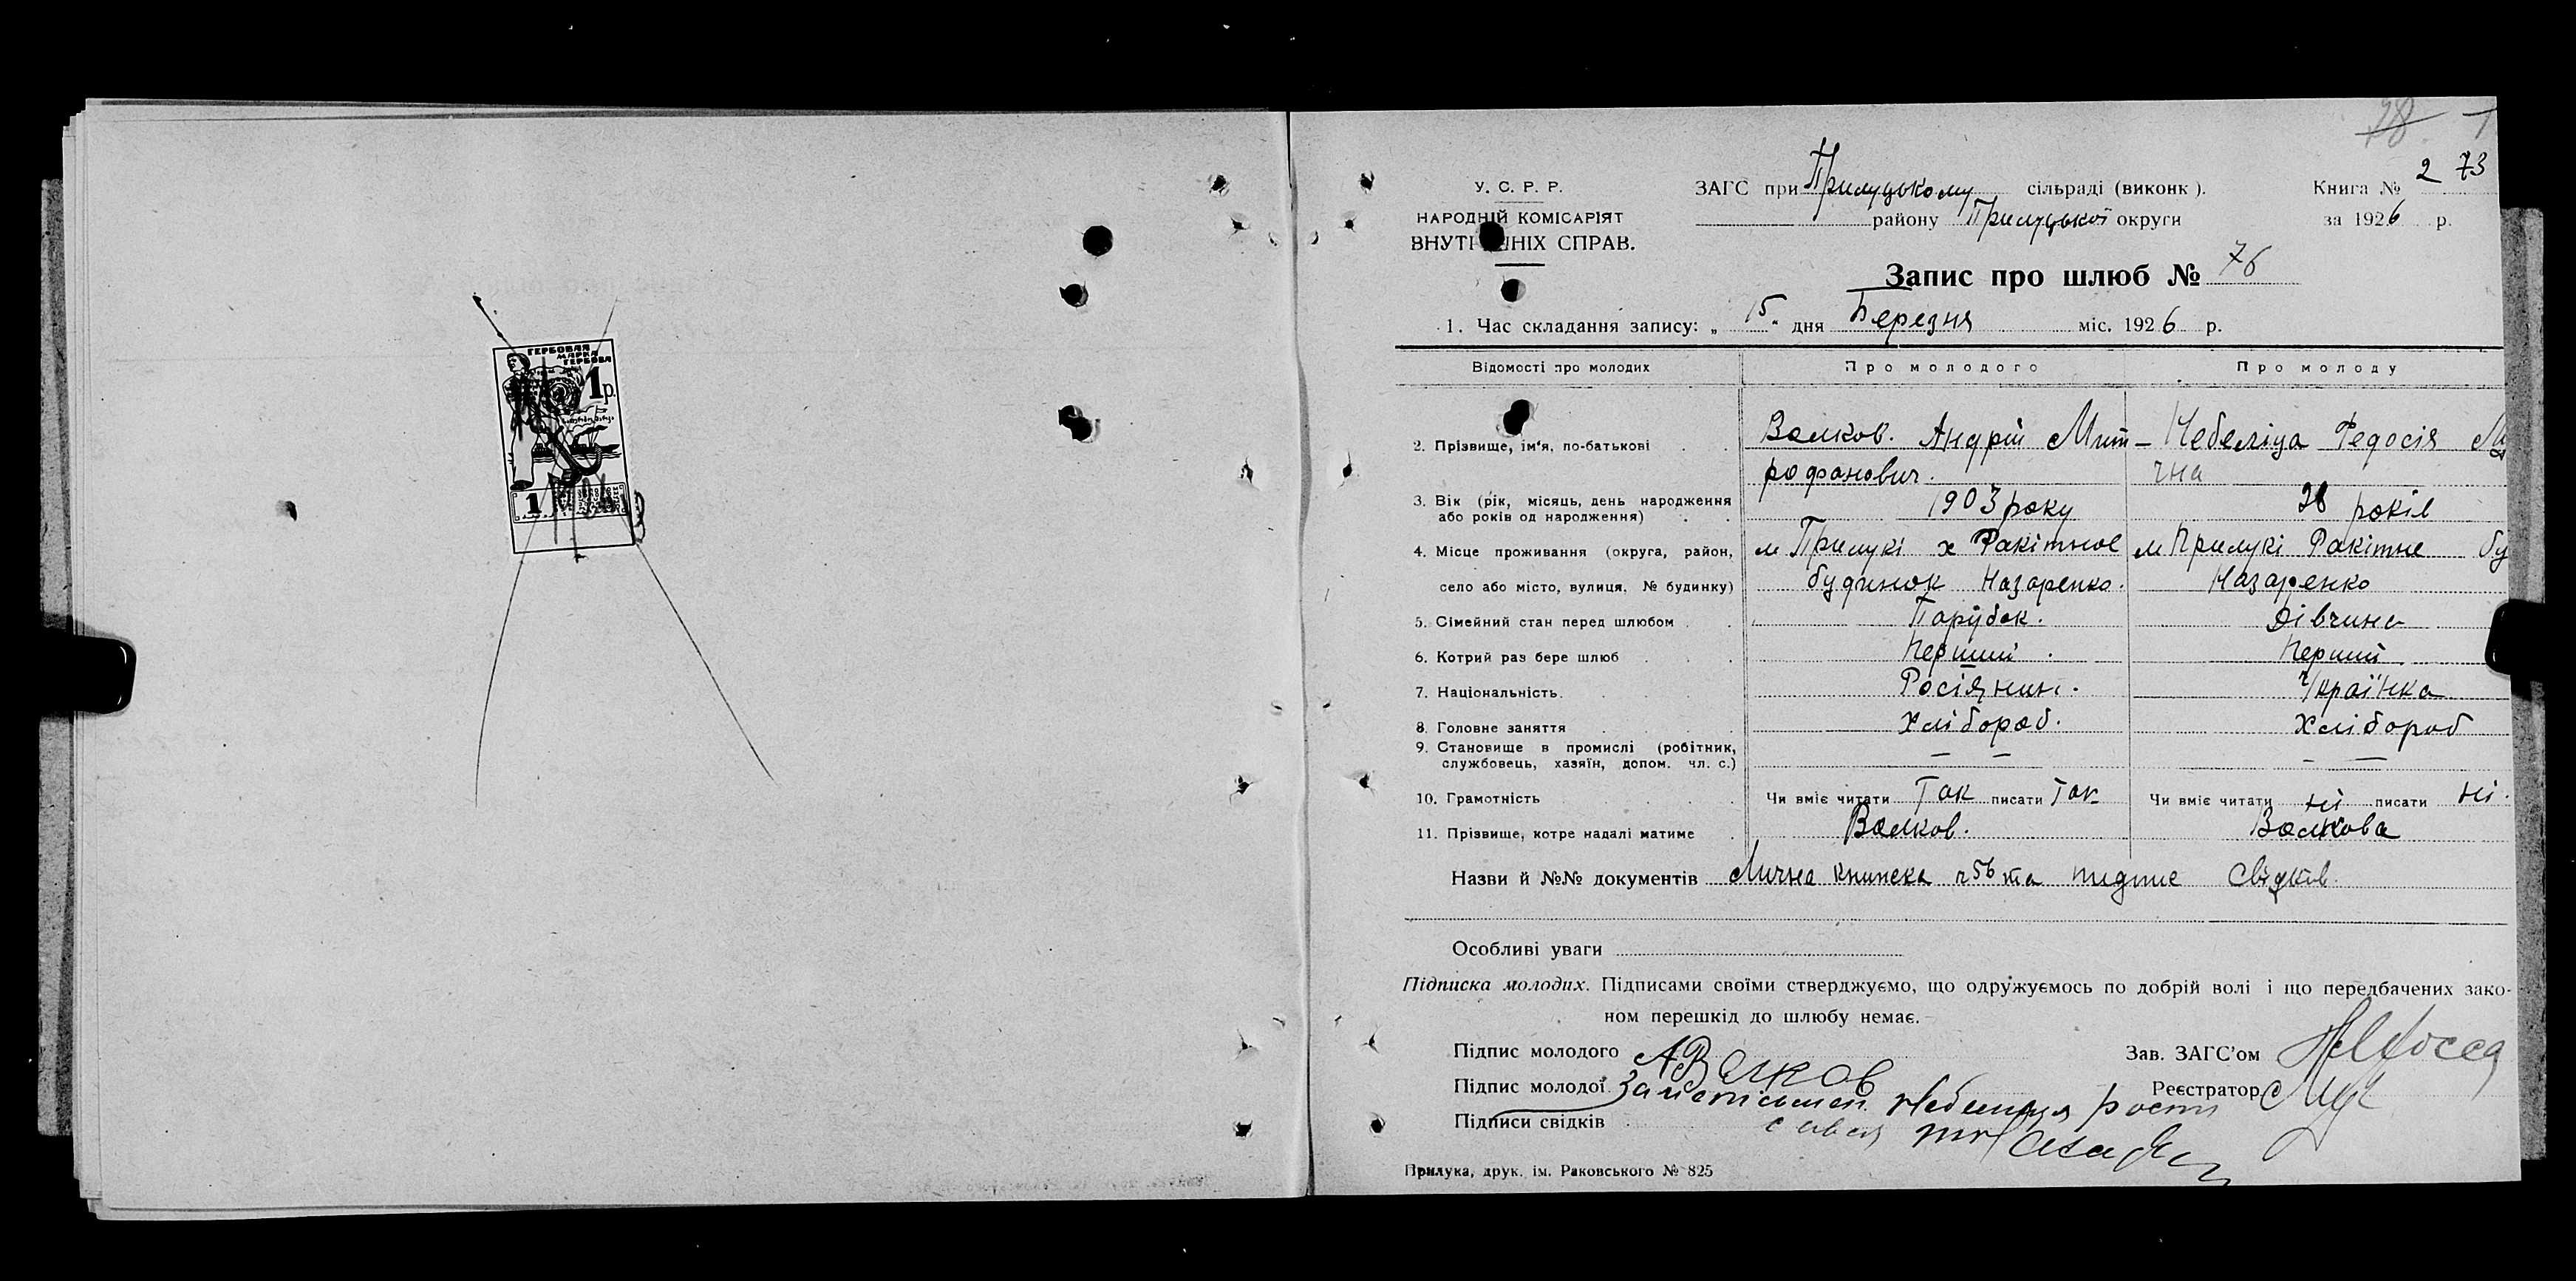 ГЕРБОВАЯ
МАРКА
ГЕРБОВА
1 р.
1
28 2 73
У. С. Р. Р.
НАРОДНІЙ КОМІСАРІЯТ
ВНУТРІШНІХ СПРАВ.
ЗАГС при Прилуцькому сільраді (виконк).
району Прилуцької округи
Книга №
за 1926 р.
Запис про шлюб № 76
1. Час складання запису: „15“ дня Березня міс. 1926 р.
Відомості про молодих Про молодого Про молоду
2. Прізвище, ім'я, по-батькові Волков. Андрій Мит- Небеліца Федосія
рофанович. чна
3. Вік (рік, місяць, день народження або років од народження) 1903 року 28 років
4. Місце проживання (округа, район, м Прилукі х Ракітное м Прилукі Ракітне бу
село або місто, вулиця, № будинку) будинок Назаренко. Назаренко
5. Сімейний стан перед шлюбом Парубок. Дівчина
6. Котрий раз бере шлюб Перший. Перший
7. Національність. Росіянин. Українка
8. Головне заняття Хлібороб. Хлібороб
9. Становище в промислі (робітник, службовець, хазяїн, допом. чл. с.) — — — —
10. Грамотність Чи вміє читати Так писати Так Чи вміє читати ні писати ні.
11. Прізвище, котре надалі матиме Волков. Волкова
Назви й №№ документів Лична книжка ч 56 та підпис свідків
Особливі уваги
Підписка молодих. Підписами своїми стверджуємо, що одружуємось по добрій волі і що передбачених зако-
ном перешкід до шлюбу немає.
Підпис молодого АВолков Зав. ЗАГС'ом
Підпис молодої Небелиця Реєстратор
Підписи свідків
Прилука, друк. ім. Раковського № 825